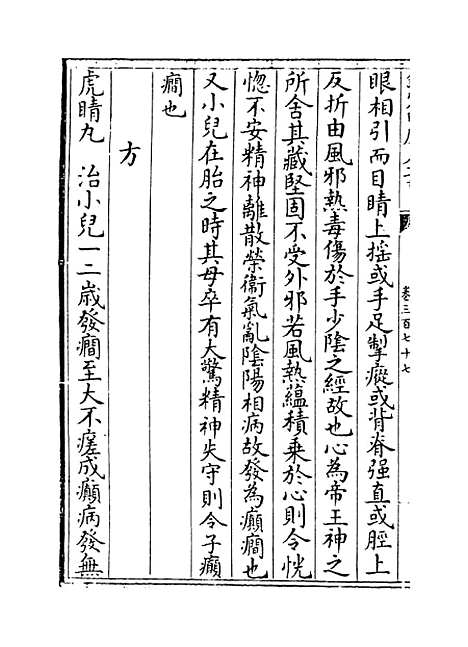 卷三百七十七
眼相引而目睛上揺或手足掣瘲或背脊强直或脛上
反折由風邪熱毒傷於手少陰之經故也心為帝王神之
所舍其藏堅固不受外邪若風熱蘊積乗於心則令恍
惚不安精神離散榮衞氣亂陰陽相病故發為癲癎也
又小兒在胎之時其母卒有大驚精神失守則令子癲
癎也
方
虎睛丸 治小兒一二歳發癎至大不瘥成癲病發無